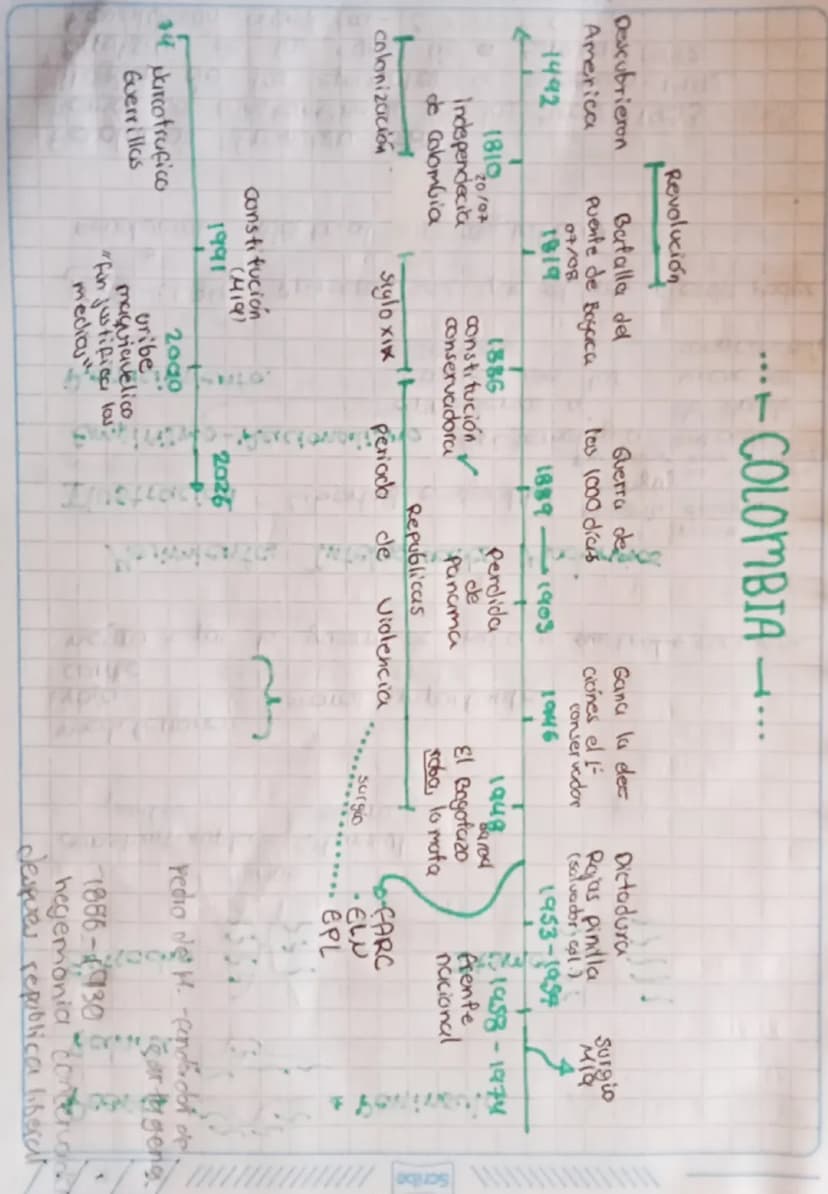 ...⊢ COLOMBIA ⊣...
Revolución
Descubrieron
America
Batalla del
puente de Boyaca
07/08
Guerra de
los 1000 dias
Gana la elec
ciones el P.
conservador
Dictadura
Rojas pinilla
(salvador col.)
Surgio
M19
1492
1819
1889 — 1903
1946
1953-1957
1810
20/07
Independecia
de Colombia
1886
constitución
conservadora ✓
Perdida
de
Panama
1948
09 abril
El Bogotazo
lo mata
1958 - 1974
frente
nacional
colonización
siglo xix
Republicas
Periodo de violencia
Surgio
FARC
ELN
EPL
1991
constitución
(M19)
2000
uribe
maquiavelico
"fin justifica los
medios"
2026
74
Narcotrafico
Guerrillas
Pedro de H. -fundador de
cartagena
-1886-1930
hegemonia
despues republica liberal
Scribe